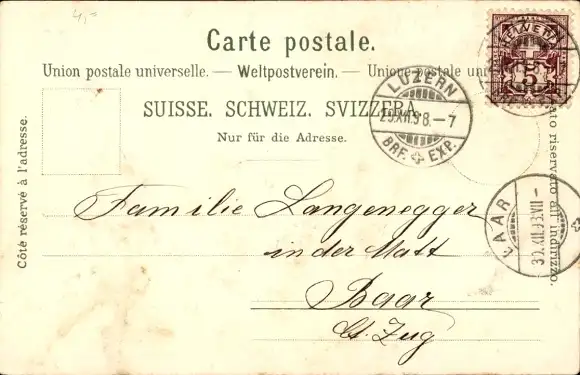 4,=
Carte postale.
Union postale universelle. — Weltpostverein. — Unione postale
HELVETIA
5
LUZERN
29.XII.98.–7
BRF. EXP.
SUISSE. SCHWEIZ. SVIZZERA.
Nur für die Adresse.
Côté réservé à l'adresse.
riservato all'indirizzo.
Familie Langenegger
in der Matt
Baar
Ct. Zug
BAAR